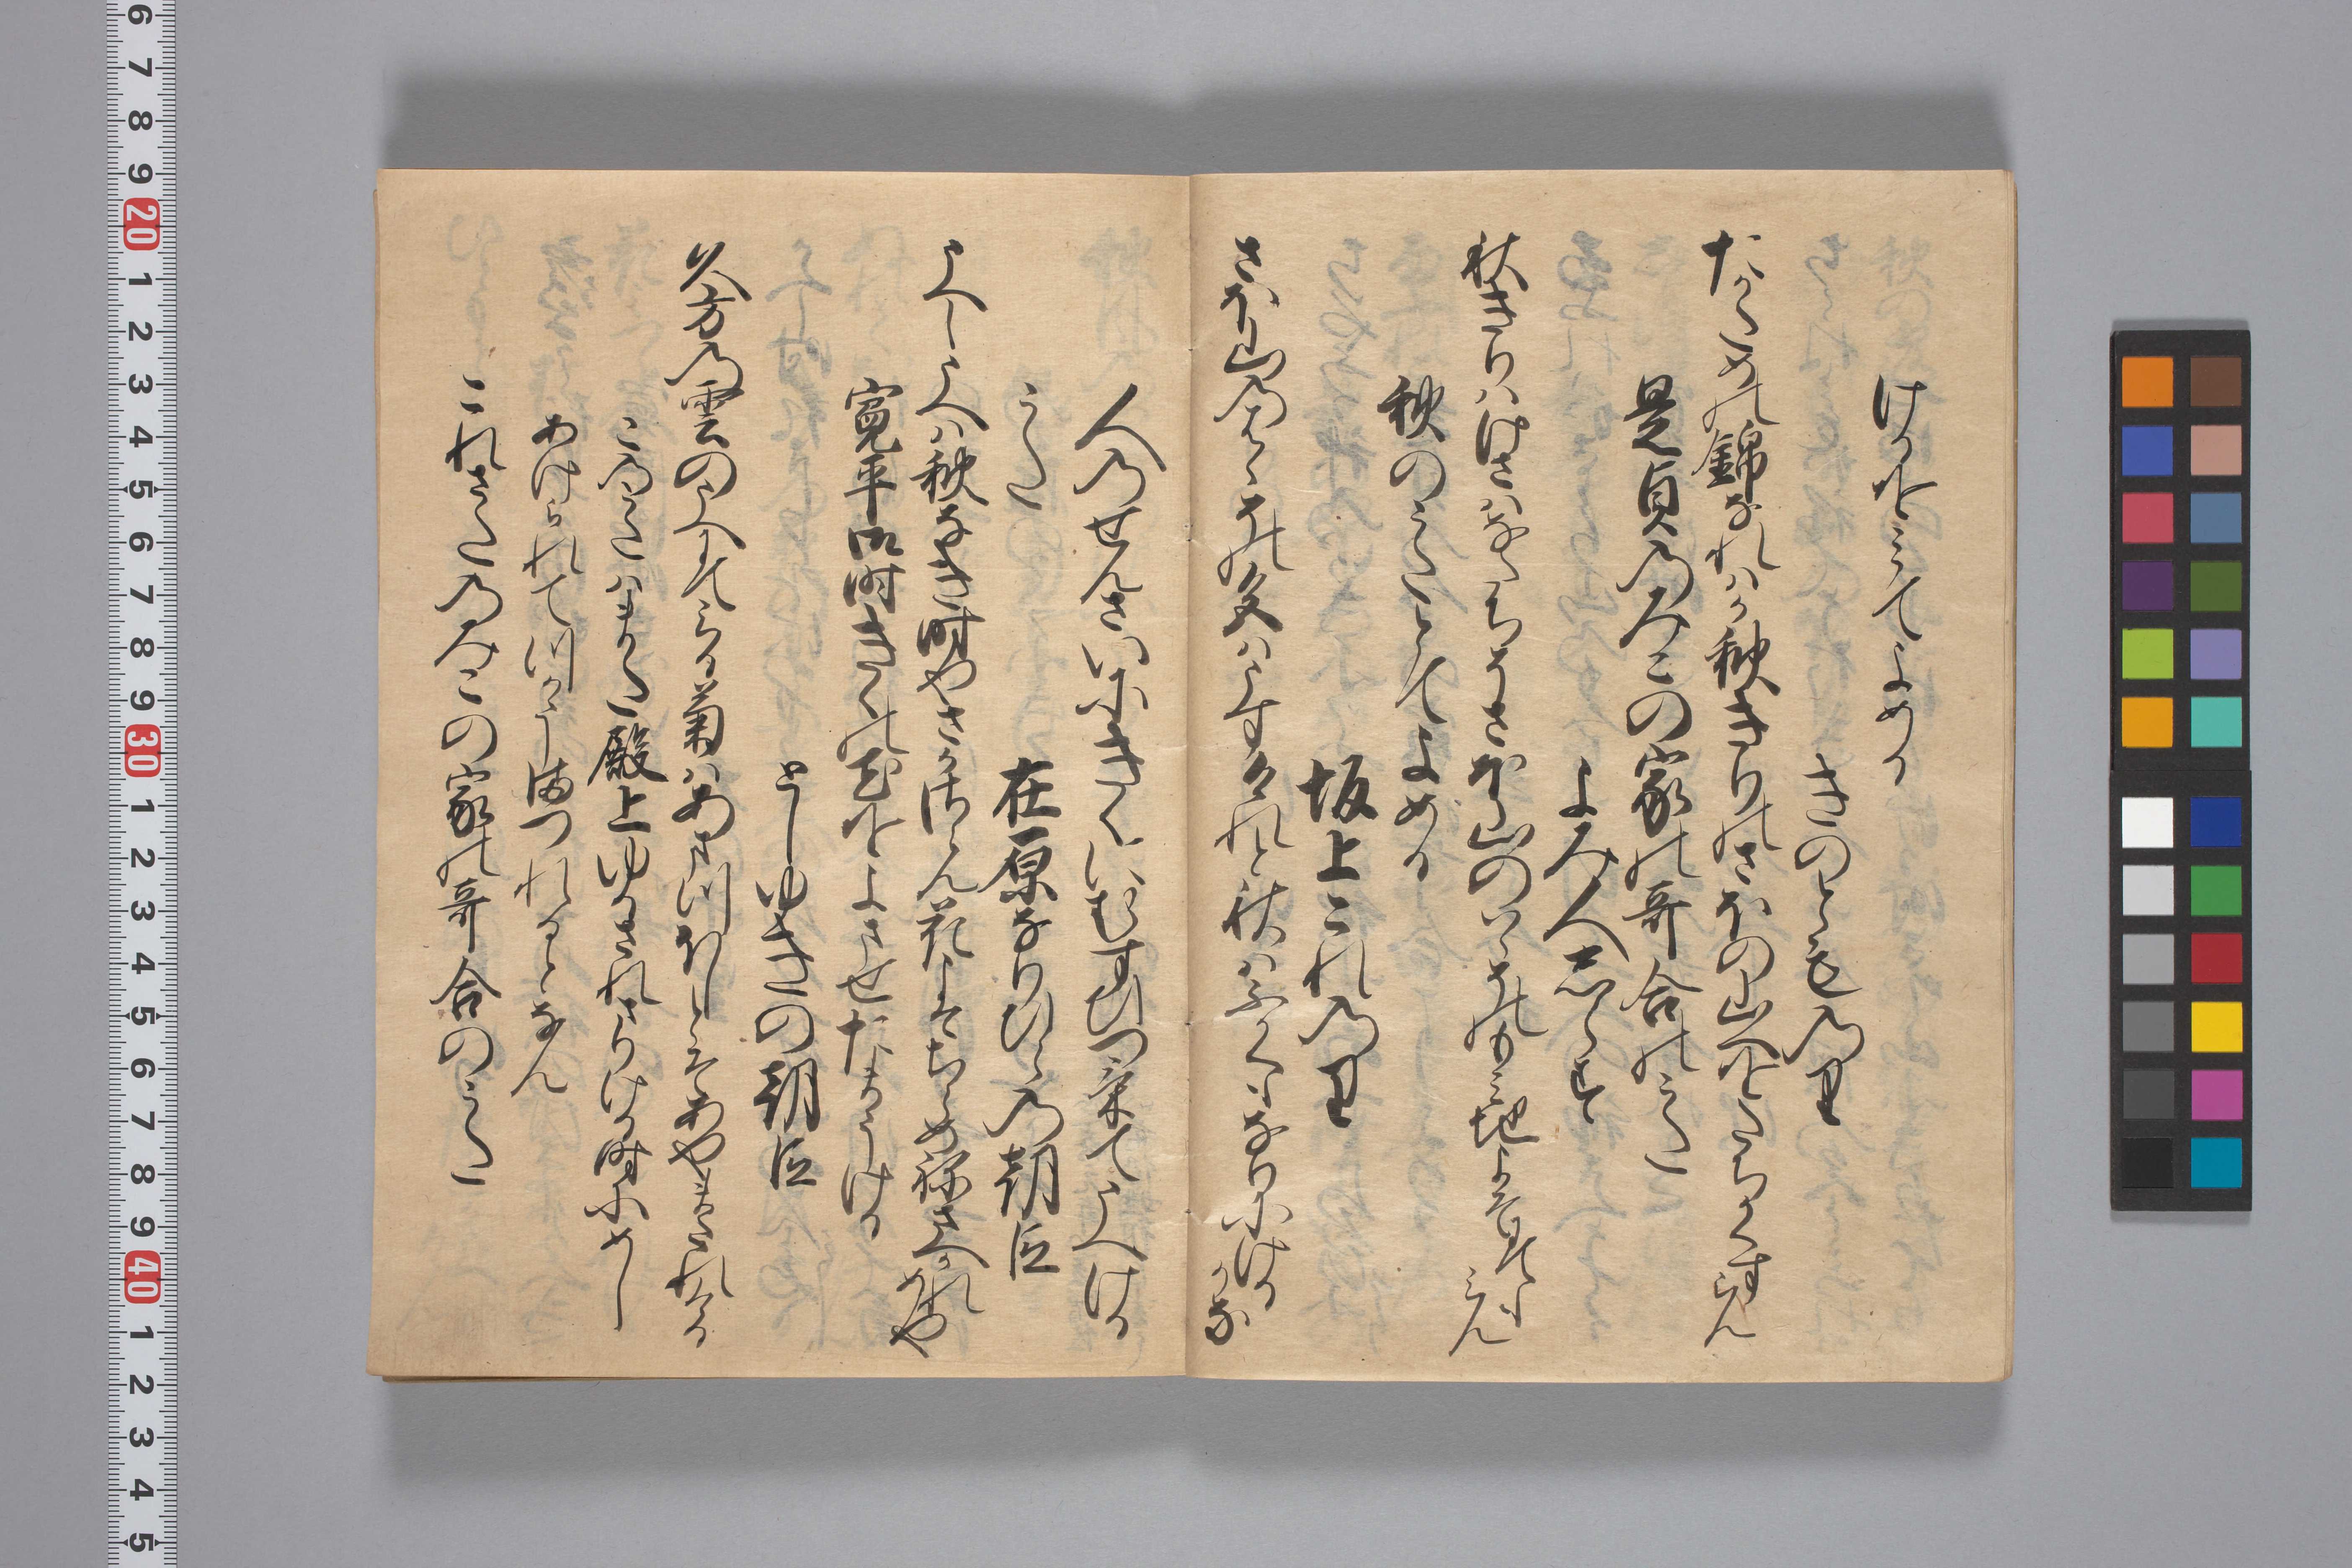 けるをみてよめる
きのとものり
たかための錦なれはか秋きりのさほの山へをたちかくすらん
是貞のみこの家の哥合のうた
よみ人しらす
秋きりはけさはなたちそさほ山のはゝそのもみちよそにてもみん
秋のうたとてよめる
坂上これのり
さほ山のはゝその色はうすけれと秋はふかくもなりにけるかな
人のせんさいにきくにむすひつけてうへける
うた
在原なりひらの朝臣
うへしうへは秋なき時やさかさらん花こそちらめ根さへかれめや
寛平御時きくの花をよませたまうける
としゆきの朝臣
久方の雲のうへにてみる菊はあまつほしとそあやまたれける
このうたはまた殿上ゆるされさりける時にめし
あけられてつかうまつれるとなん
これさたのみこの家の哥合のうた
6 7 8 9 20 1 2 3 4 5 6 7 8 9 30 1 2 3 4 5 6 7 8 9 40 1 2 3 4 5